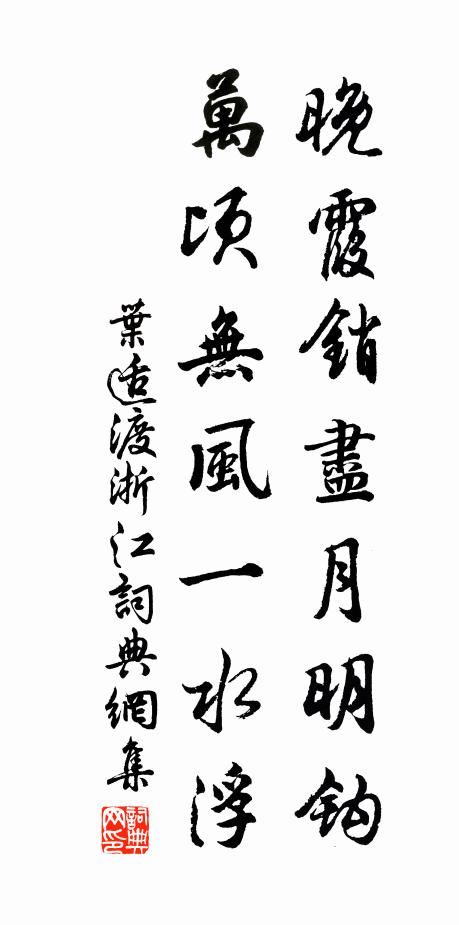 晚霞銷盡月明鈎
萬頃無風一水浮
葉適渡浙江詞典網集
詞典
网印